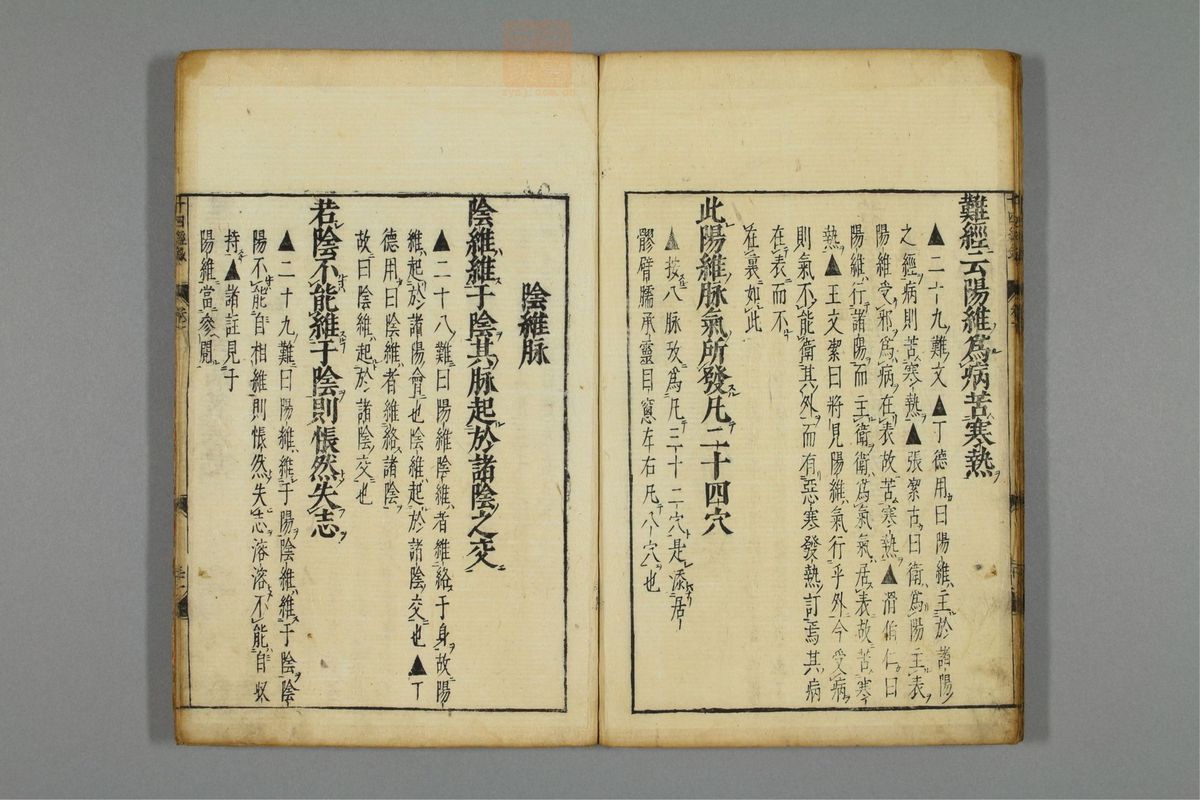 難經云陽維爲病苦寒熱
▲二十九難文▲丁德用曰陽維主於諸陽
之經病則苦寒熱▲張絜古曰衛爲陽主表
陽維受邪爲病在表故苦寒熱▲滑伯仁曰
陽維行諸陽而主衛衛爲氣氣居表故苦寒
熱▲王文絜曰將見陽維氣行乎外今受病
則氣不能衛其外而有惡寒發熱訂焉其病
在表而不
在裏如此
此陽維脉氣所發凡二十四穴
▲按八脉攷爲凡三十二穴是添居
髎臂臑承靈目窻左右凡八穴也
陰維脉
陰維維于陰其脉起於諸陰之交
▲二十八難曰陽維陰維者維絡于身故陽
維起於諸陽會也陰維起於諸陰交也▲丁
德用曰陰維者維絡諸陰
故曰陰維起於諸陰交也
若陰不能維于陰則悵然失志
▲二十九難曰陽維維于陽陰維維于陰陰
陽不能自相維則悵然失志溶溶不能自收
持▲諸註見于
陽維當參閱